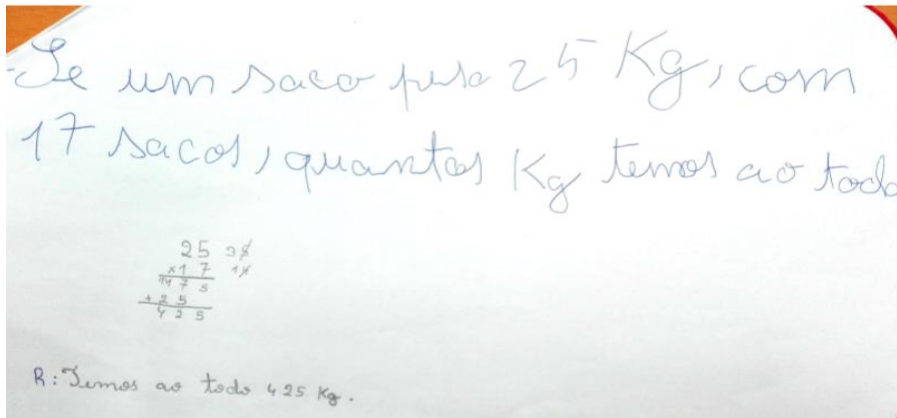 - Se um saco pesa 25 Kg, com
17 sacos, quantos Kg temos ao todo
25
x17
175
+25
425
R: Temos ao todo 425 Kg.